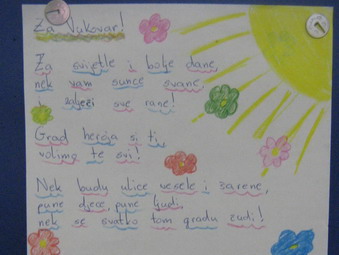 Za Vukovar!
Za svijetle i bolje dane,
nek vam sunce svane,
i zaliječi sve rane!
Grad heroja si ti,
volimo te svi!
Nek budu ulice vesele i šarene,
pune djece, pune ljudi,
nek se svatko tom gradu žudi!